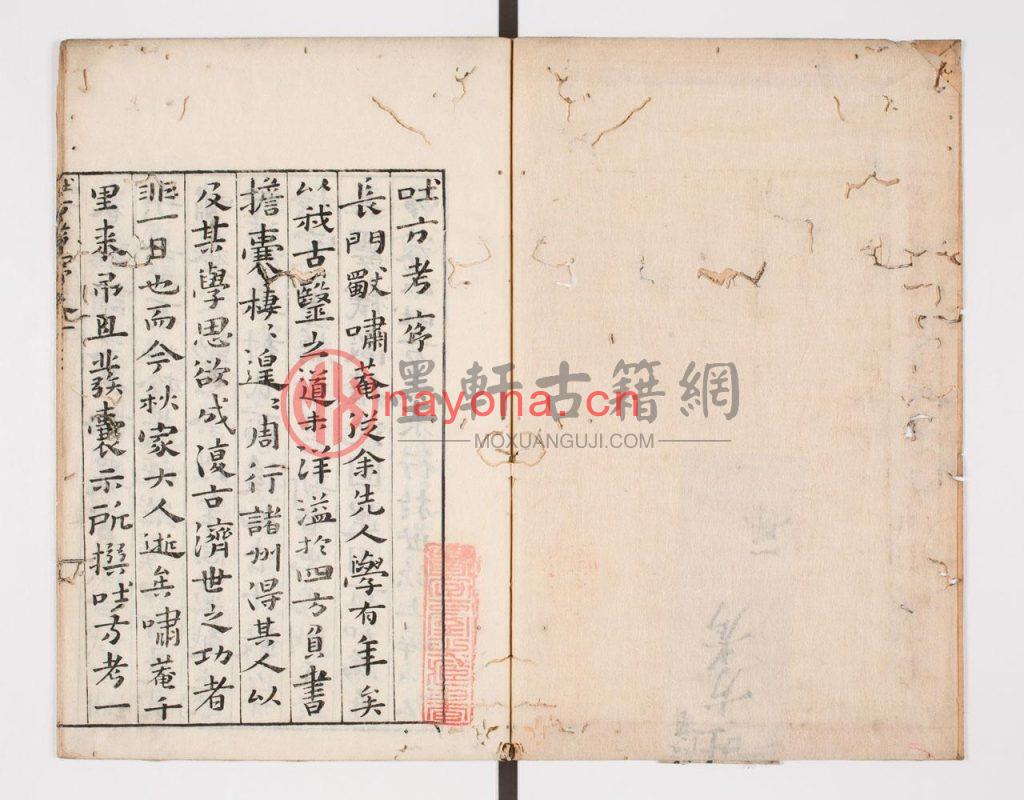 吐方考序
長門獸嘯菴從余先人學有年矣
以我古醫之道未洋溢於四方負書
擔囊棲〻遑〻周行諸州得其人以
及其學思欲成復古濟世之功者
非一日也而今秋家大人逝矣嘯菴千
里來吊且發囊示所撰吐方考一
吐方考序
墨軒古籍網
nayona.cn
MOXUANGUJI.COM